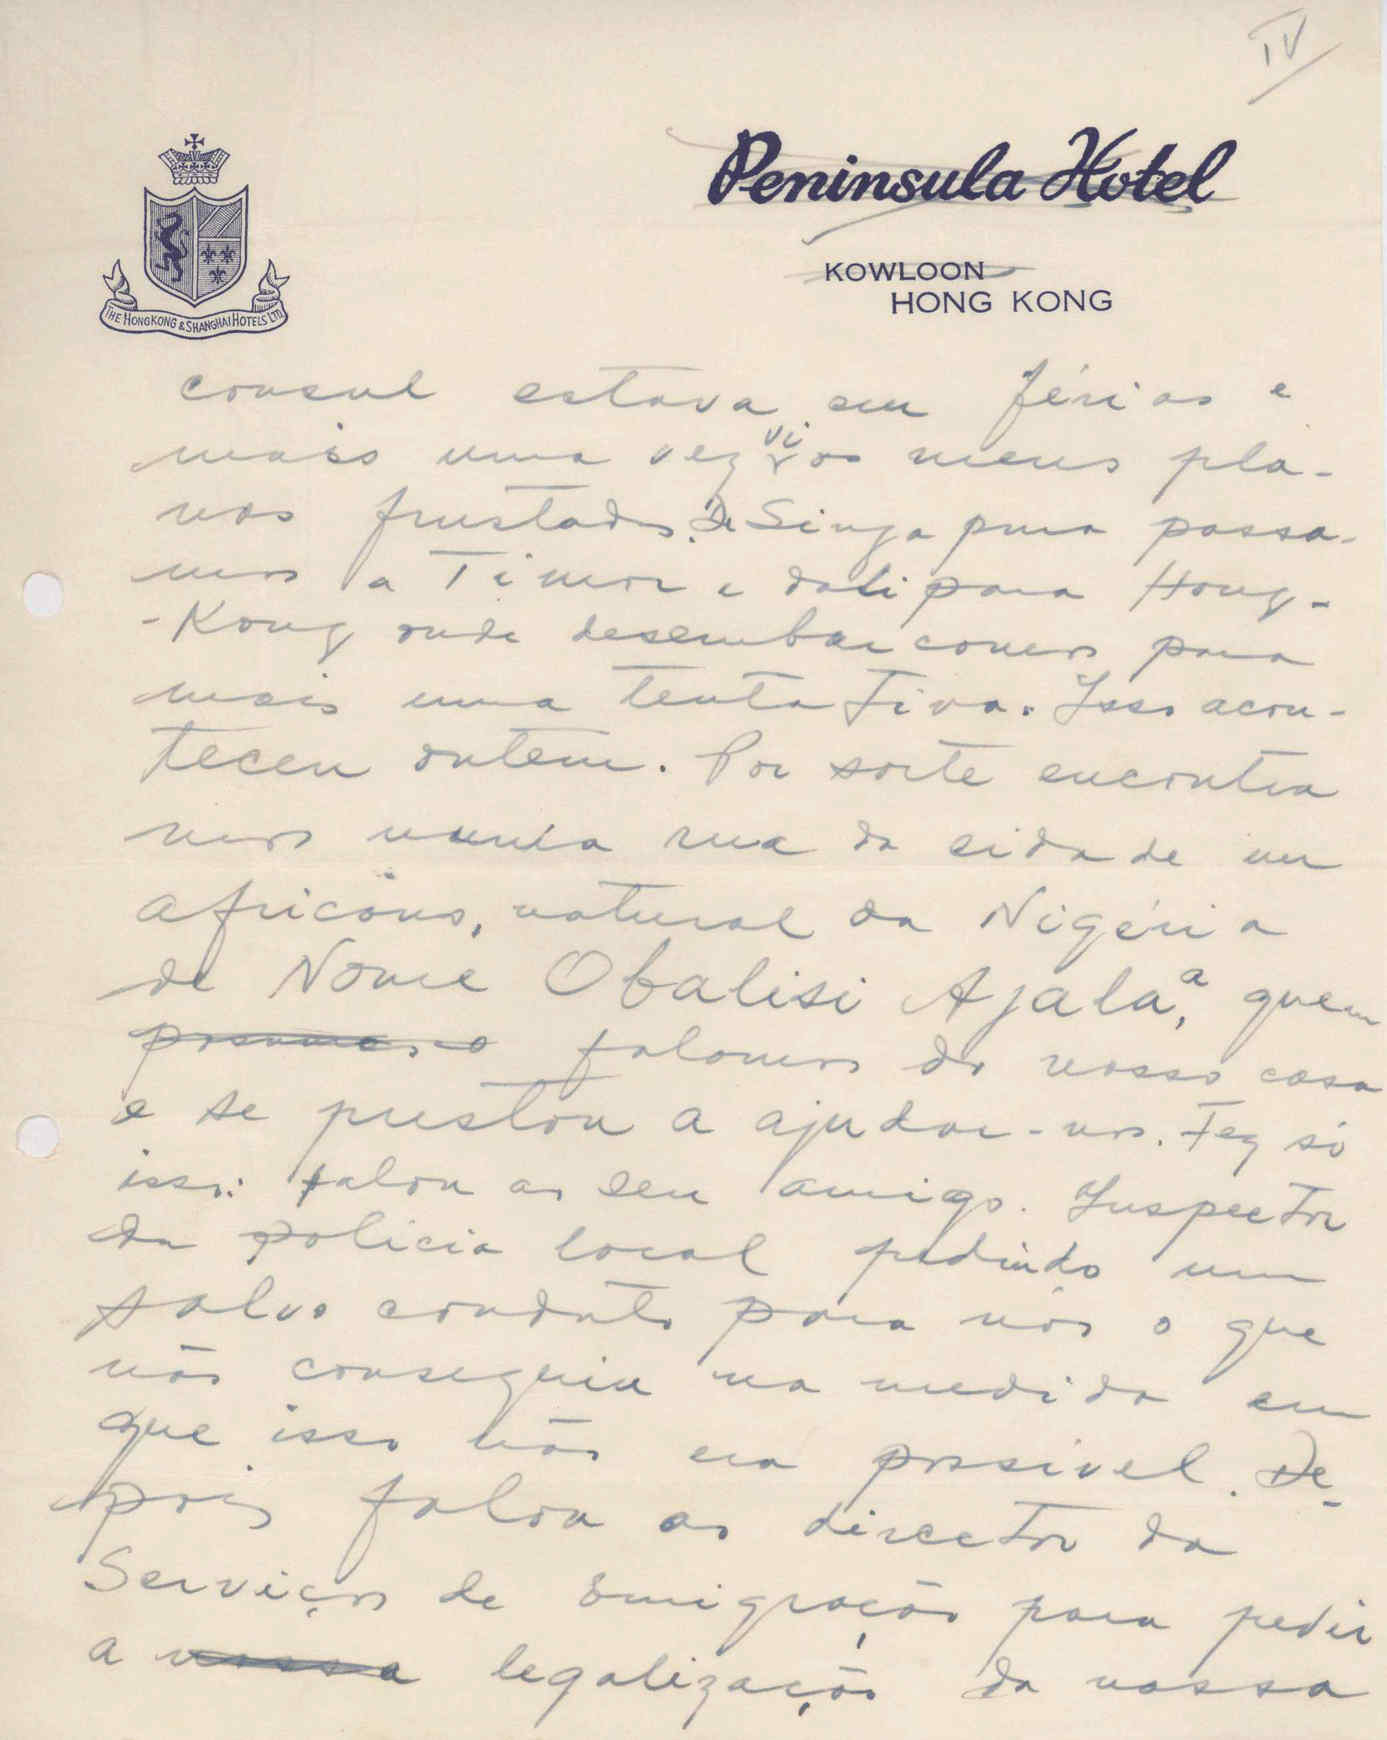 IV
Peninsula Hotel
KOWLOON
HONG KONG
THE HONGKONG & SHANGHAI HOTELS LTD
consul estava em férias e
mais uma vez vi os meus pla-
nos frustados. De Singapura passa-
mos a Timor e dali para Hong-
-Kong onde desembarcamos para
mais uma tentativa. Isso acon-
teceu ontem. Por sorte encontra
mos numa rua da cidade um
africano, natural da Nigéria
de Nome Obalisi Ajala, a quem
falamos do nosso caso
e se prestou a ajudar-nos. Fez só
isso: falou ao seu amigo. Inspector
da policia local pedindo um
salvo conduto para nós o que
não conseguiu na medida em
que isso não era possivel. De-
pois falou ao director da
Serviços de Emigração para pedir
a nossa legalização da nossa